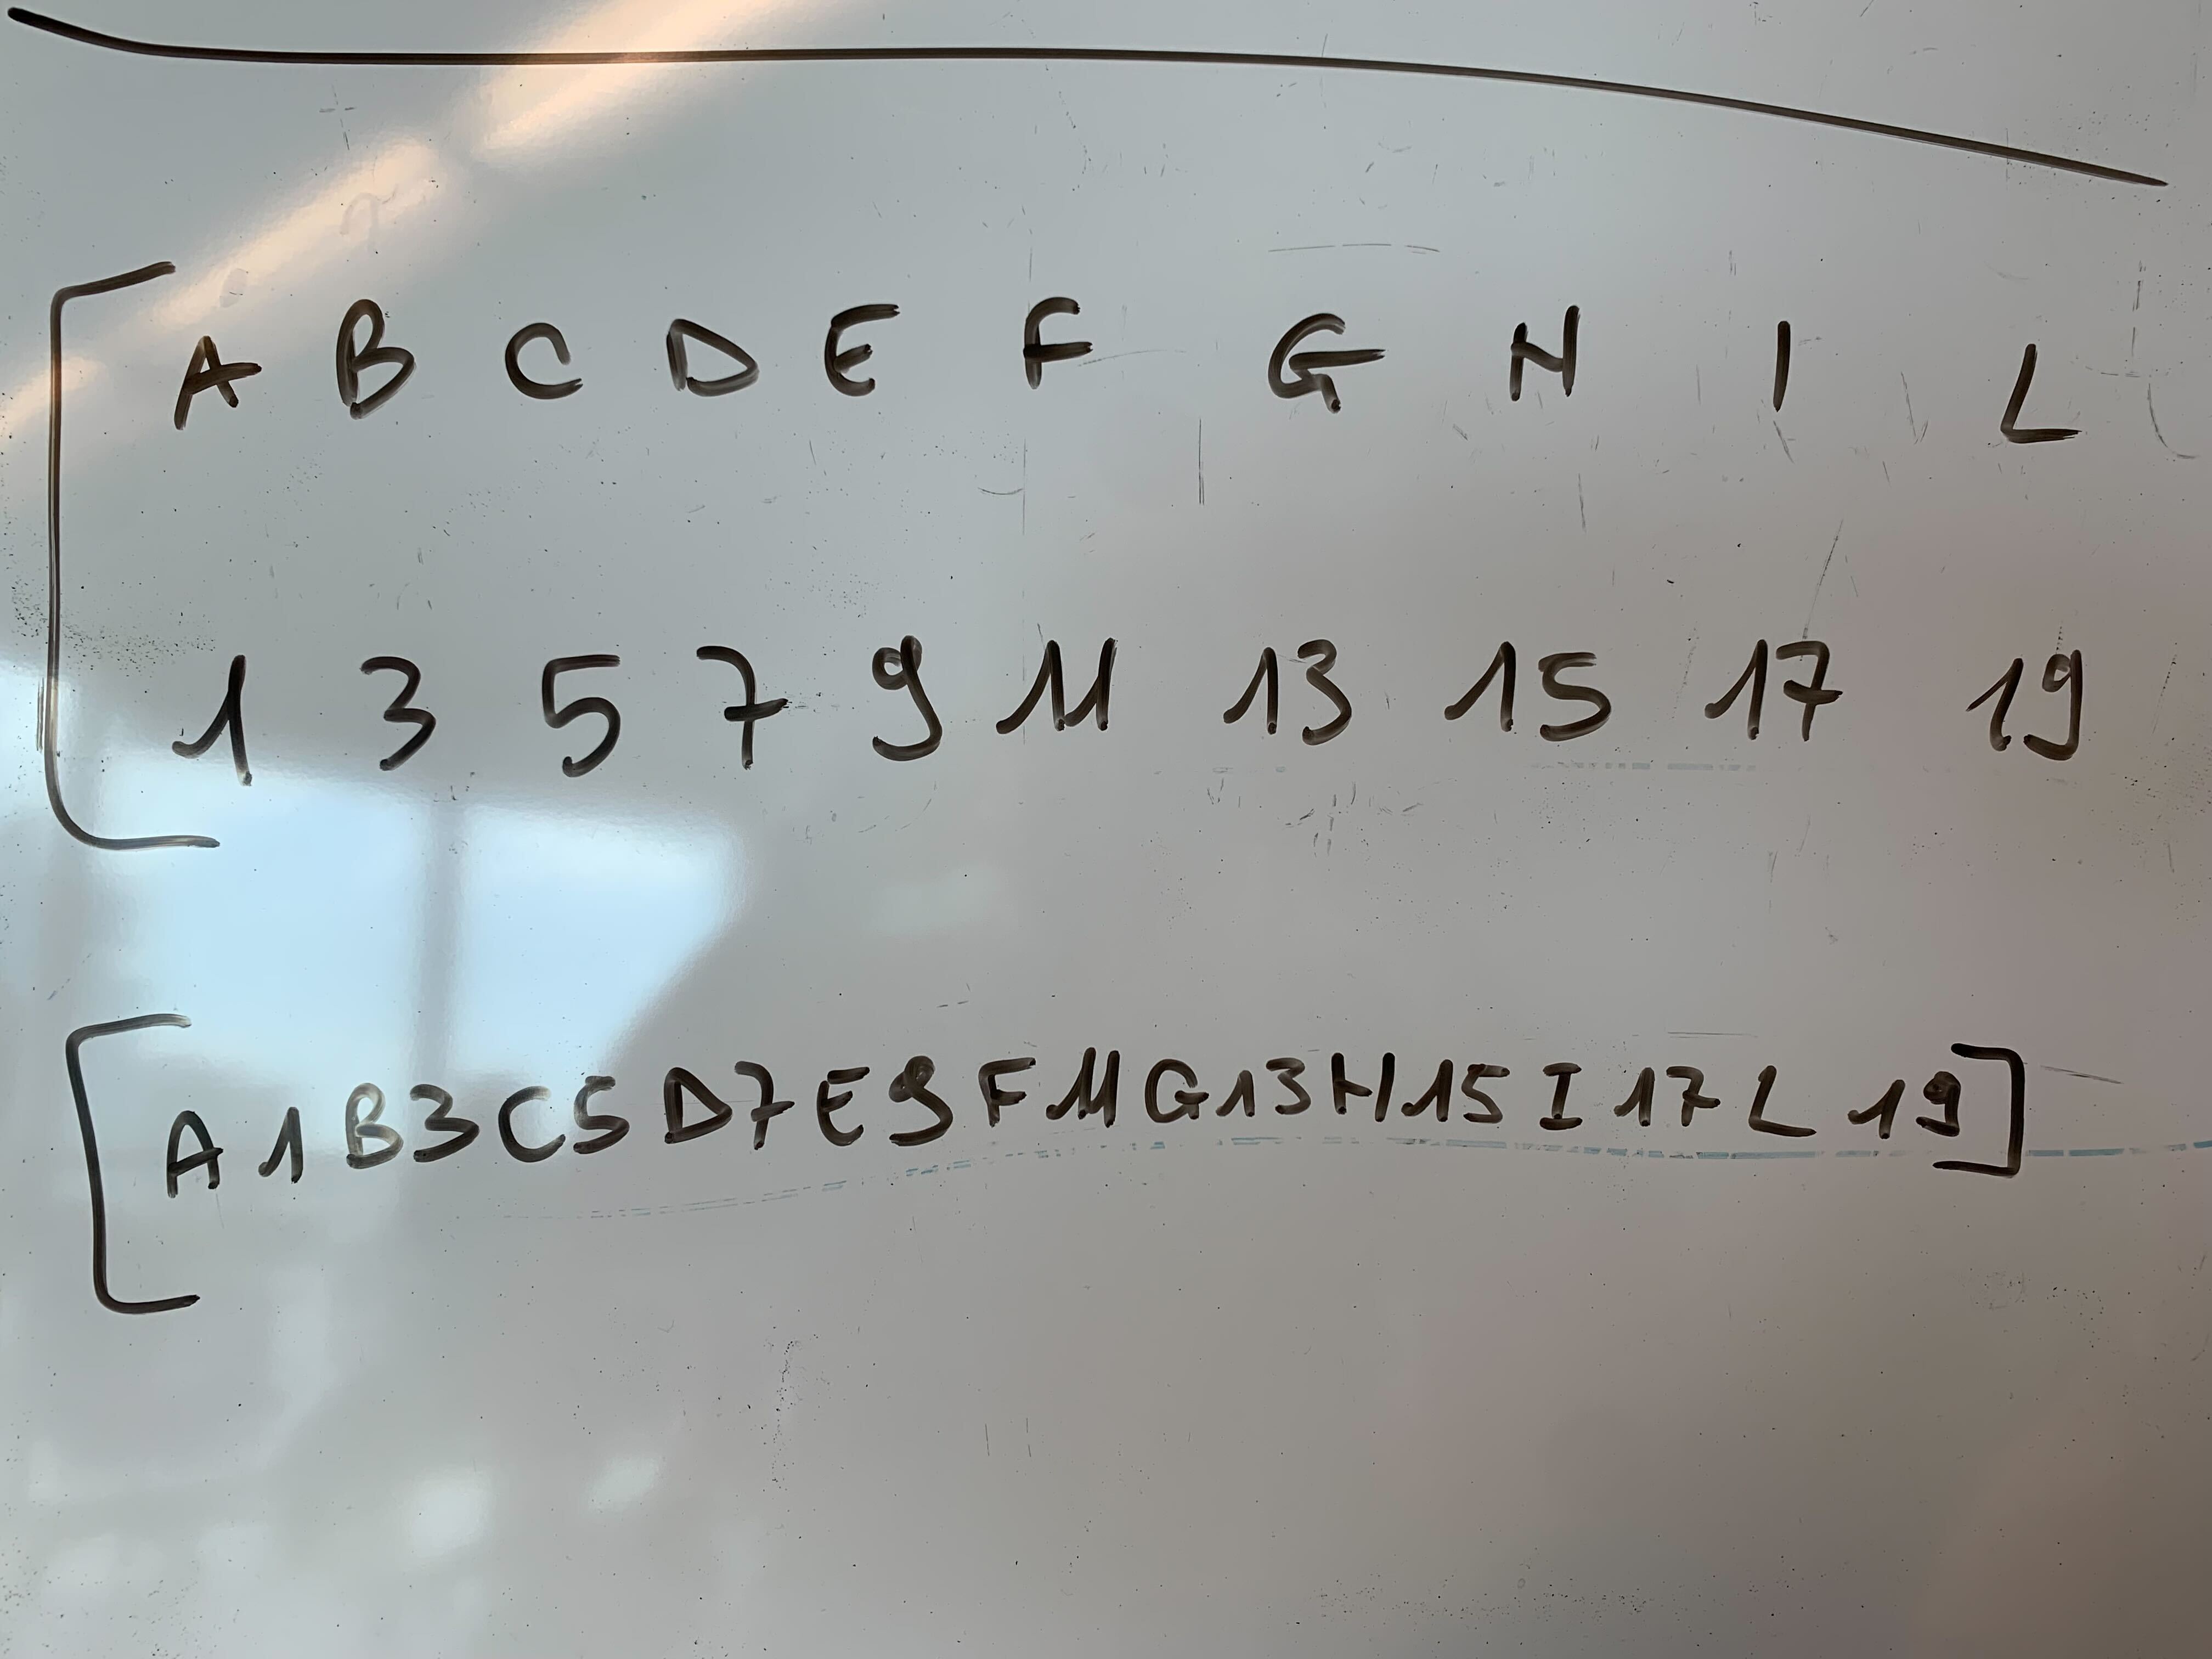 A B C D E F G H I L
1 3 5 7 9 11 13 15 17 19
[A 1 B 3 C 5 D 7 E 9 F 11 G 13 H 15 I 17 L 19]